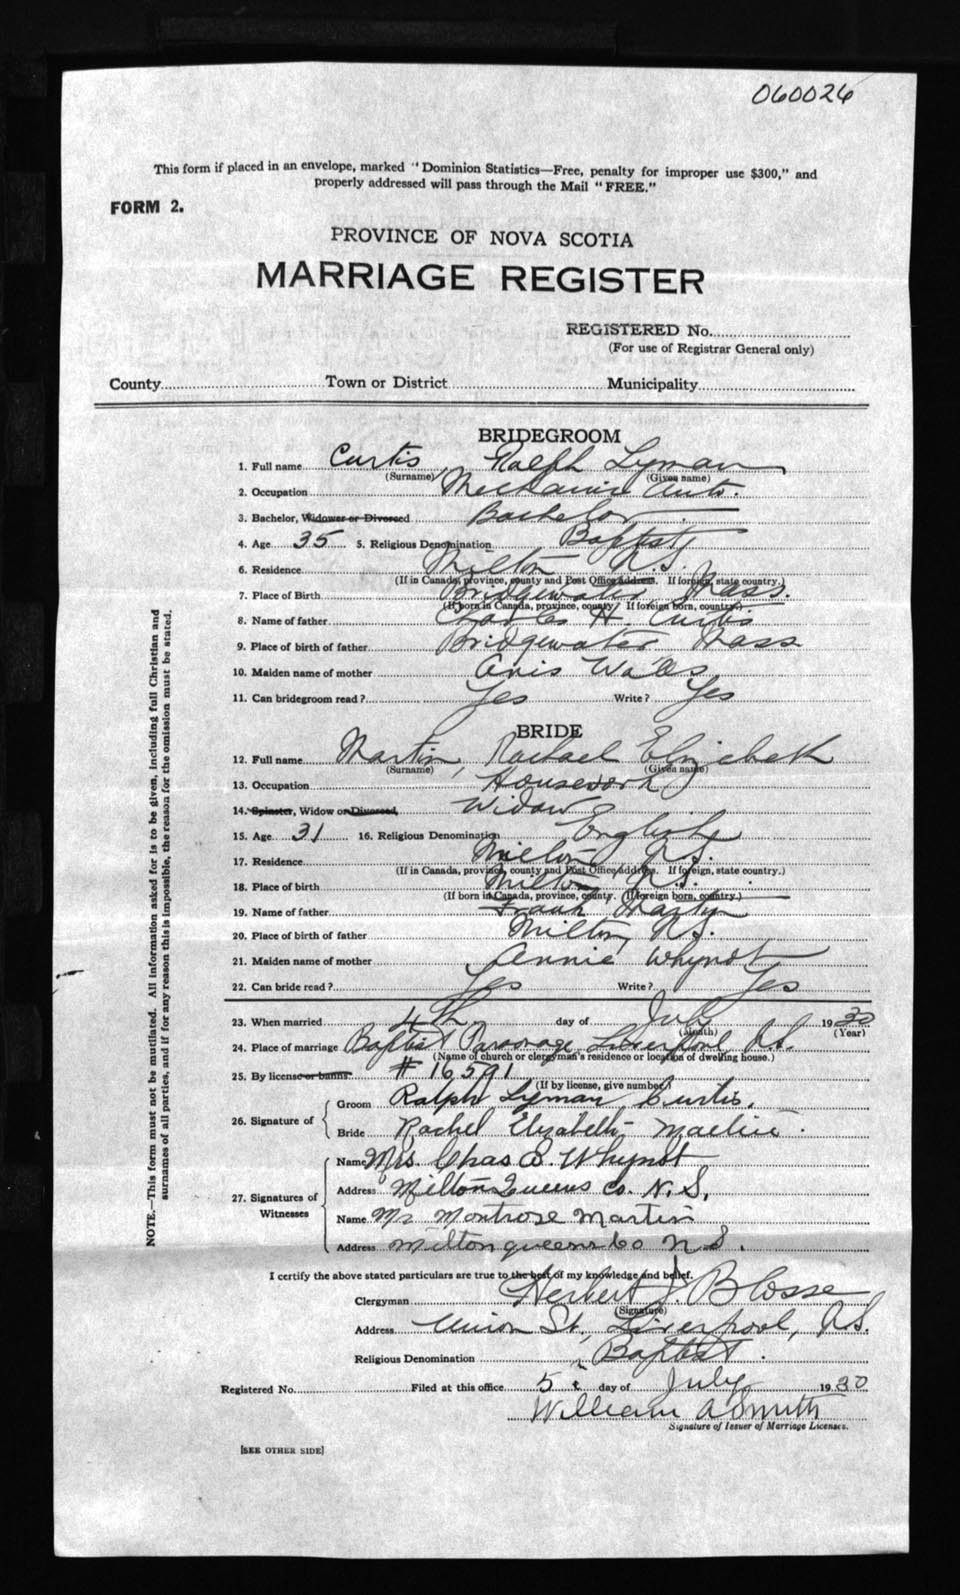 060026
This form if placed in an envelope, marked "Dominion Statistics—Free, penalty for improper use $300," and
properly addressed will pass through the Mail "FREE."
FORM 2.
PROVINCE OF NOVA SCOTIA
MARRIAGE REGISTER
REGISTERED No.
(For use of Registrar General only)
County Town or District Municipality
BRIDEGROOM
1. Full name Curtis Ralph Lyman
(Surname) (Given name)
2. Occupation Mechanic Auto.
3. Bachelor, Widower or Divorced Bachelor
4. Age 35 5. Religious Denomination Baptist
6. Residence Milton N.S.
(If in Canada, province, county and Post Office address. If foreign, state country.)
7. Place of Birth Bridgewater, Mass.
(If born in Canada, province, county. If foreign born, country.)
8. Name of father Charles H. Curtis
9. Place of birth of father Bridgewater Mass
10. Maiden name of mother Avis
11. Can bridegroom read? Yes Write? Yes
BRIDE
12. Full name Martin, Rachael Elizabeth
(Surname) (Given name)
13. Occupation Housework
14. Spinster, Widow or Divorced, Widow
15. Age 31 16. Religious Denomination English
17. Residence Milton N.S.
(If in Canada, province, county and Post Office address. If foreign, state country.)
18. Place of birth Milton N.S.
(If born in Canada, province, county. (If foreign born, country.)
19. Name of father Frank Martin
20. Place of birth of father Milton, N.S.
21. Maiden name of mother Annie Whynot
22. Can bride read? Yes Write? Yes
23. When married 4th day of July 1930
(Month) (Year)
24. Place of marriage Baptist Parsonage Liverpool, N.S.
(Name of church or clergyman's residence or location of dwelling house.)
25. By license or banns. # 16591
(If by license, give number.)
26. Signature of
Groom Ralph Lyman Curtis.
Bride Rachel Elizabeth Martin.
27. Signatures of Witnesses
Name Mrs. Chas B. Whynot
Address Milton Queens Co. N.S.
Name Mr Montrose Martin
Address Milton queens Co N S.
I certify the above stated particulars are true to the best of my knowledge and belief.
Clergyman Herbert J. Blosse
(Signature)
Address Union St, Liverpool, N.S.
Religious Denomination Baptist.
Registered No. Filed at this office 5 day of July 1930
William A Smith
Signature of Issuer of Marriage Licenses.
[SEE OTHER SIDE]
NOTE.—This form must not be mutilated. All information asked for is to be given, including full Christian and
surnames of all parties, and if for any reason this is impossible, the reason for the omission must be stated.